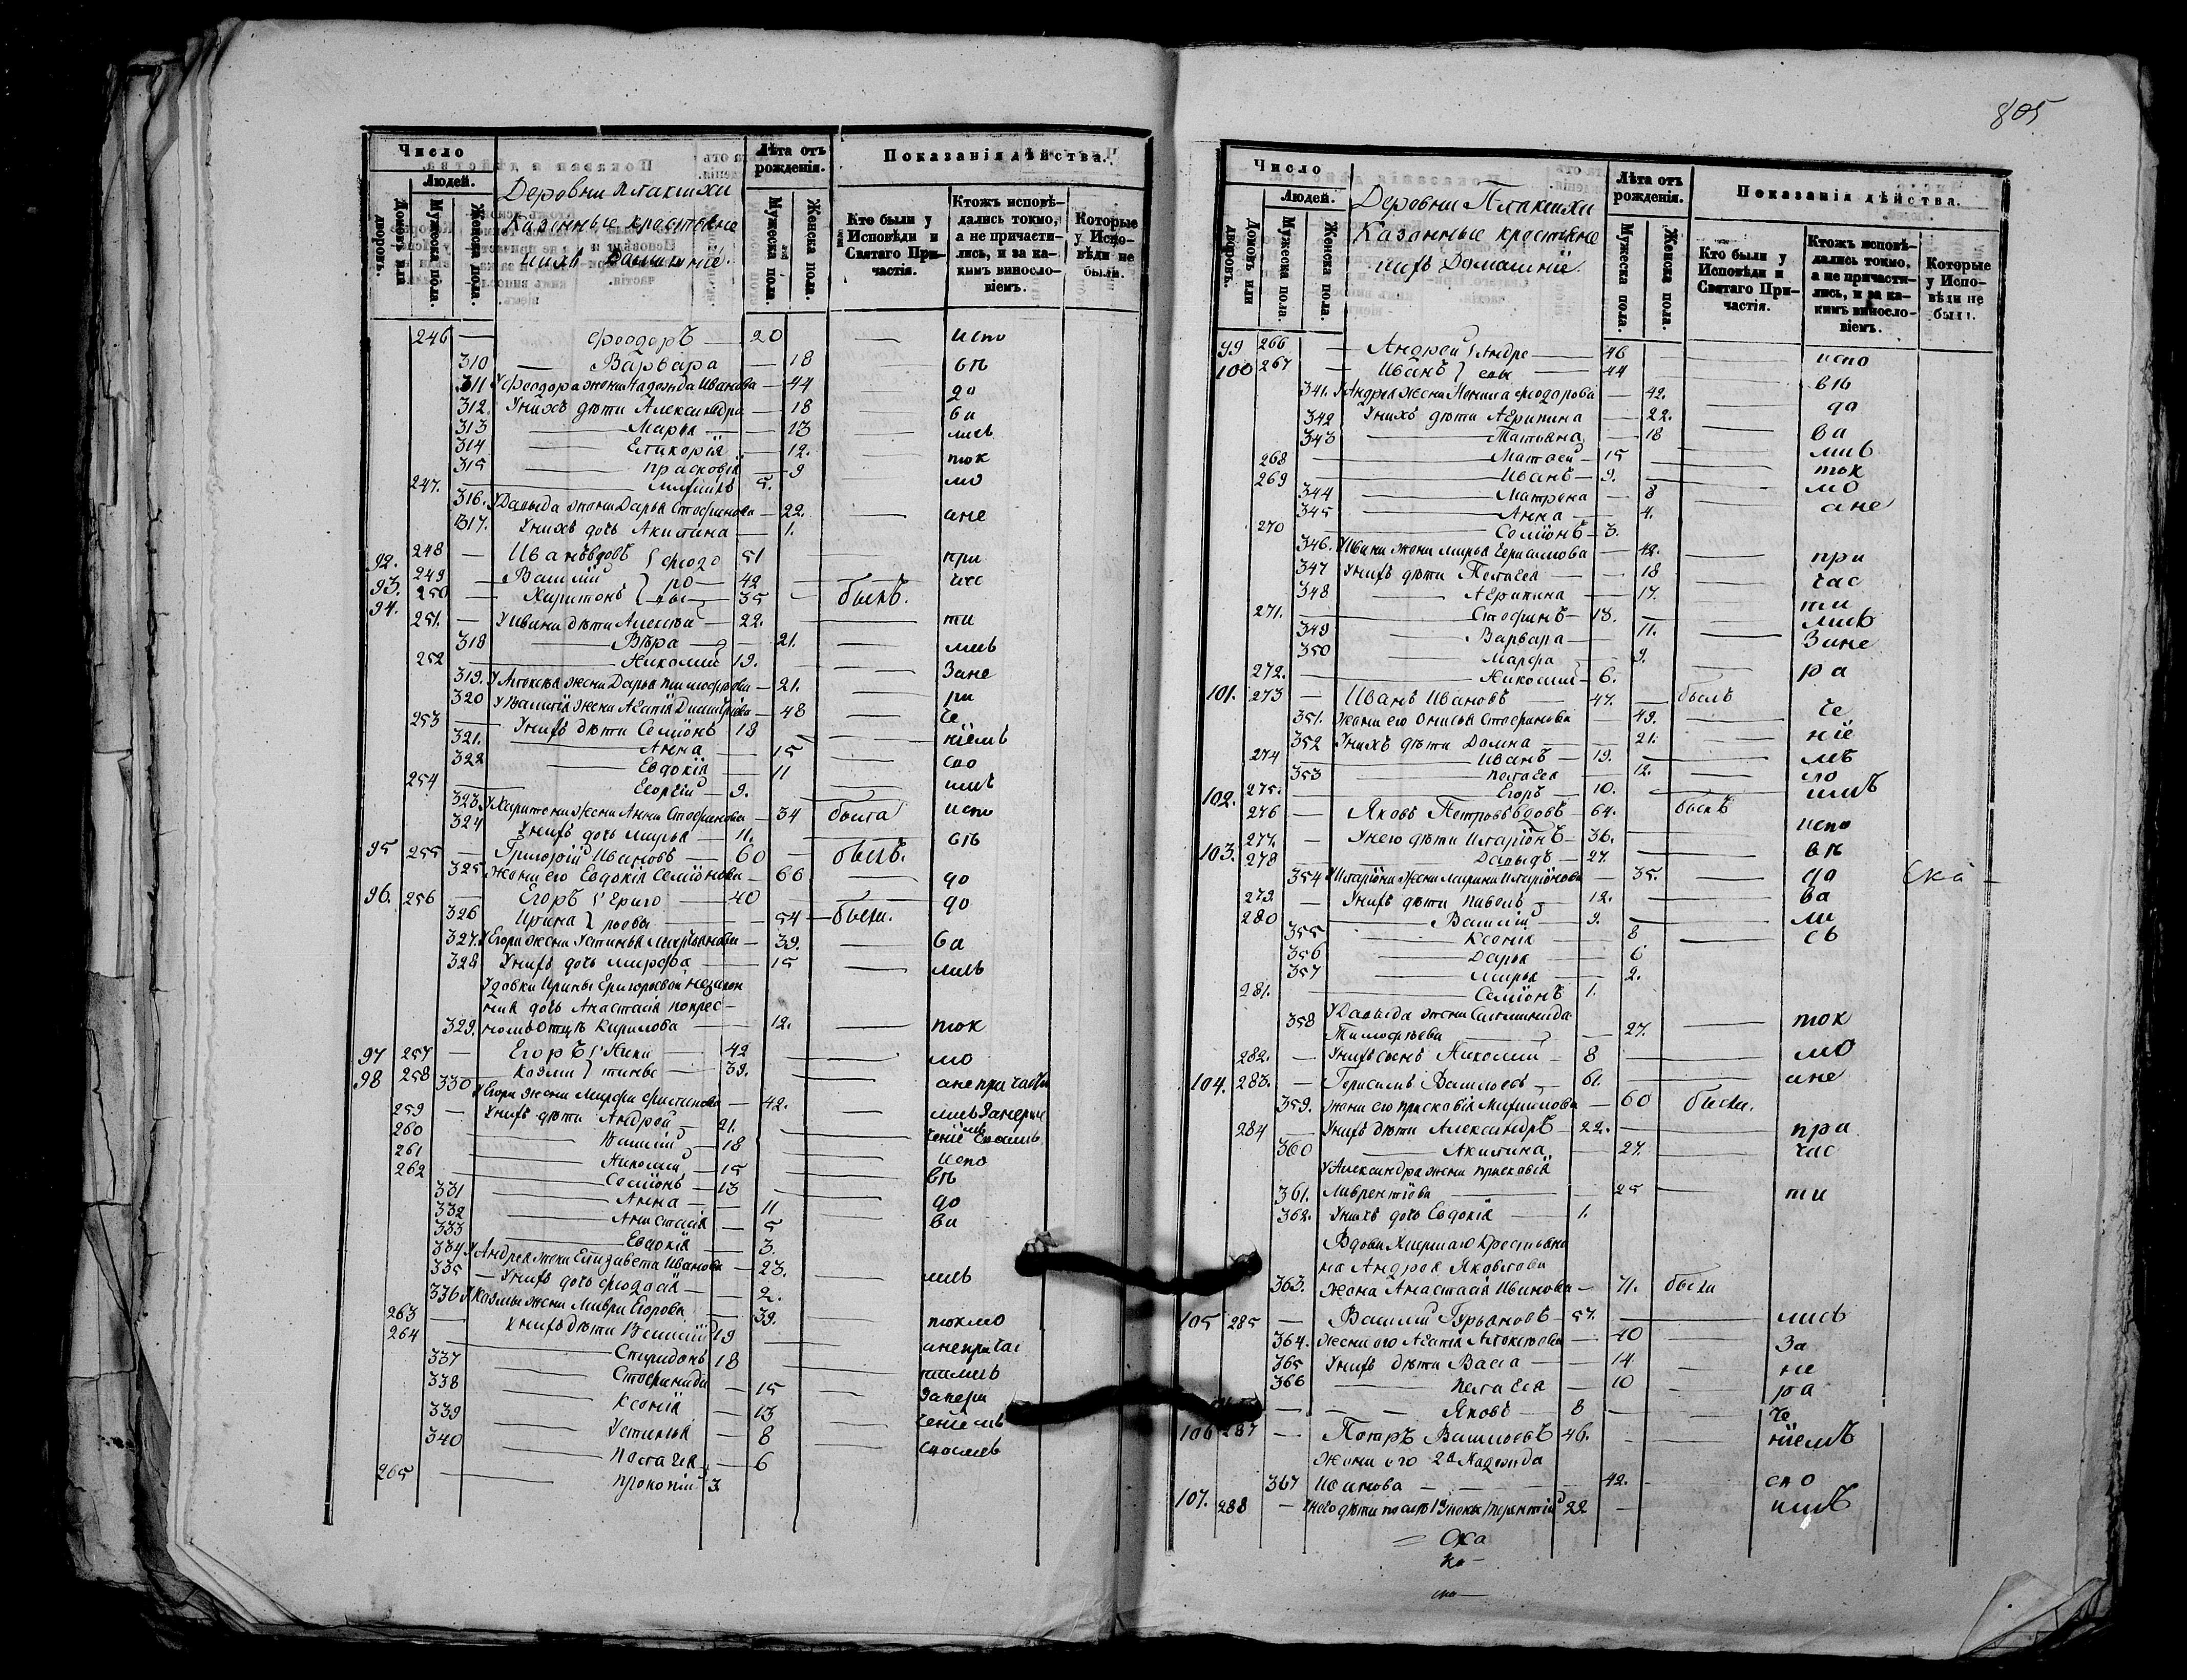 805
Число
Людей.
Домовъ или дворовъ.
Мужеска пола.
Женска пола.
Деревни Плакихи
Казенные крестьяне
ихъ домашніе.
Лѣта отъ рожденія.
Мужеска пола.
Женска пола.
Показанія дѣйства.
Кто были у Исповѣди и Святаго Причастія.
Ктожъ исповѣдались токмо, а не причастились, и за какимъ винословіемъ.
Которые у Исповѣди не были.
246 — Феодоръ — 20 — испо
310 — Варвара — 18 — вѣ
311 У Феодора жена Надежда Иванова — 44 — до
312. У нихъ дѣти Александра — 18 — ва
313 — Марья — 13 — лись
314 — Гликерія — 12. — ток
315 — Прасковія — 9 — мо
247. — 5.
316. У Давыда жена Дарья Стефанова — 22. — ане
317. У нихъ дочь Акилина — 1.
92. 248 — Иванъ вдовъ } Феодо 51 — при
93. 249 — Василій } ро — 42 — час
94. 250 — Харитонъ } вы — 35 — былъ.
251. — У Ивана дѣти Алексѣй — 22. — ти
318 — Вѣра — 21. — лись
252 — Николай 19. — Зане
319. У Алексѣя жена Дарья Тимофѣева — 21. — ра
320 У Василія жена Агафія Димитріева — 48 — че
253 — У нихъ дѣти Семіонъ 18 — ніемъ
321. — Анна — 15 — спо
322 — Евдокія — 11
254 — Георгій — 9.
323. У Харитона жена Анна Стефанова — 34 была испо
324 У нихъ дочь Марья — 11. — вѣ
95 255 — Григорій Ивановъ — 60 — былъ.
325 Жена его Евдокія Семіонова — 66 — до
96. 256 — Егоръ } Григо — 40 — до
326 Ирина } рьевы — 54 — была.
327. У Егора жена Устинья Мартьянова — 39. — ва
328 У нихъ дочь Марфа — 15 — лись
У вдовы Ирины Григорьевой незакон
ная дочь Анастасія по крес-
329. ному отцѣ Кирилова — 12. — ток
97 257 — Егоръ } Ники — 42 — мо
98 258 — Козма } тины — 39. — ане причасти
330 У Егора жена Марфа — 42. — лись Занерач
259 — У нихъ дѣти Андрей — 21.
260 — Василій — 18 — испо
261 — Николай — 15 — вѣ
262 — Семіонъ — 13 — до
331 — Анна — 11 — ва
332 — Анастасія — 5
333 — Евдокія — 3.
334 У Андрея жена Елизавета Иванова — 23. — лись
335 — У нихъ дочь Феодосія — 2.
336 У Козмы жена Мавра Егорова — 39. — токмо
263 — У нихъ дѣти Василій 19 — ане причас
264 — Спиридонъ 18 — тились
337 — Стефанида — 15
338 — Ксенія — 13
339 — Устинья — 8
340 — Пелагея — 6
265 — Прокопій 3
Число
Людей.
Домовъ или дворовъ.
Мужеска пола.
Женска пола.
Деревни Плакихи
Казенные крестьяне
ихъ Домашніе.
Лѣта отъ рожденія.
Мужеска пола.
Женска пола.
Показанія дѣйства.
Кто были у Исповѣди и Святаго Причастія.
Ктожъ исповѣдались токмо, а не причастились, и за какимъ винословіемъ.
Которые у Исповѣди не были.
99 266 — Андрей } Андре — 46 — испо
100 267 — Иванъ } евы — 44 — вѣ
341. У Андрея жена Ненила Феодорова — 42. — до
342 У нихъ дѣти Агрипина — 22. — ва
343 — Татьяна — 18 — лись
268 — Матвей — 15 — ток
269 — Иванъ — 9. — мо
344 — Матрена — 8 — ане
345 — Анна — 4.
270 — Семіонъ — 3.
346. У Ивана жена Марья Герасимова — 42. — при
347 У нихъ дѣти Пелагея — 18 — час
348 — Агрипина — 17. — ти
271. — Стефанъ — 13. — лись
349 — Варвара — 11. — Зане
350 — Марфа — 9. — ра
272. — Николай — 6.
101. 273 — Иванъ Ивановъ 47. — былъ — че
351. Жена его Анисья Стефанова — 49. — ніе
352 У нихъ дѣти Домна — 21. — мъ
274 — Иванъ — 19.
353 — Пелагея — 12.
275. — Егоръ — 10.
102. 276 — Яковъ Петровъ вдовъ — 64. — былъ — испо
277. — У него дѣти Иларіонъ — 36. — вѣ
103. 278 — Давыдъ — 27. — до
354 У Иларіона жена Марина Иларіонова — 35. — ва
279. — У нихъ дѣти Павелъ — 12. — ли
280 — Василій — 9. — сь
355 — Ксенія — 8
356 — Дарья — 6
357 — Марья — 2.
281. — Семіонъ 1.
Ска
У Давыда жена
358 Тимофѣева — 27. — ток
282. — У нихъ сынъ Николай — 8 — мо
104. 283. — Герасимъ Васильевъ — 61. — ане
359. Жена его Прасковія Михайлова — 60 была.
284 — У нихъ дѣти Александръ — 22. — при
360 — Акилина — 27. — час
У Александра жена Прасковія
361. Лаврентіева — 25 — ти
362. У нихъ дочь Евдокія — 1.
Вдова крестьяни
на Андрея Яковлева
363. Жена Анастасія Иванова — 71. была
105 285 — Василій Гурьяновъ — 57. — лись
364. Жена его Агафія Алексѣева — 40 — За
365 У нихъ дѣти Васса — 14 — не
366 — Пелагея — 10 — ра
— Яковъ — 8 — че
106 287 — Петръ Васильевъ 46. — ніемъ
Жена его 2я Надежда
367 Иванова — 42. — спо
107. 288 — У него дѣти Терентій 22
Ска